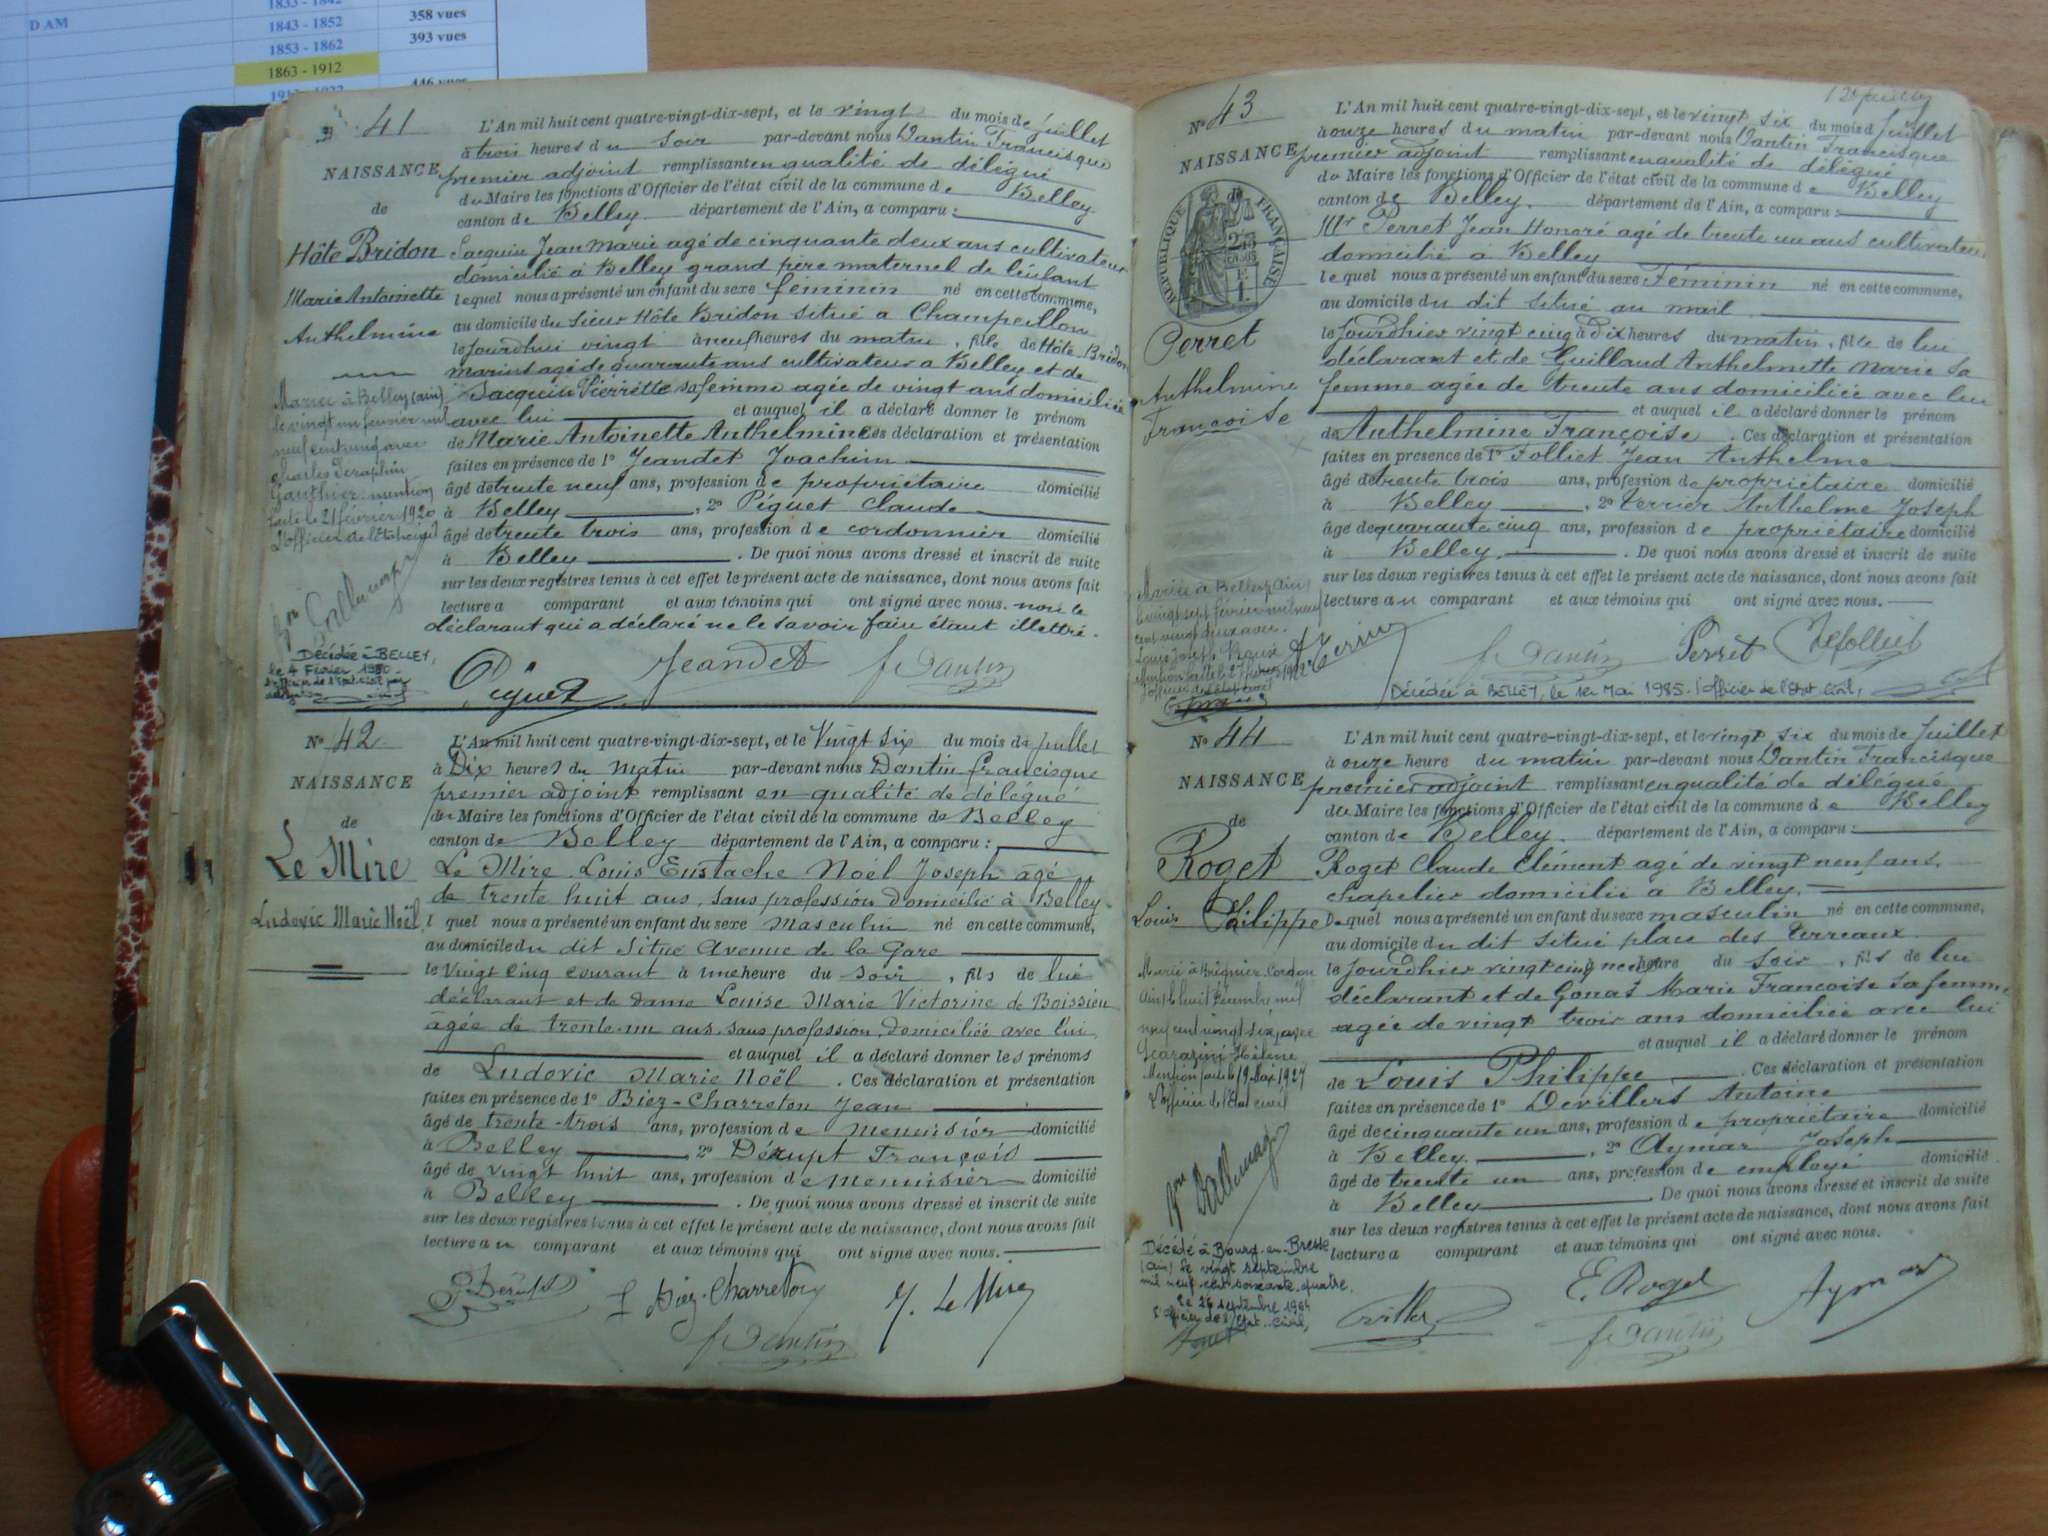 D AM
1833 - 1842
1843 - 1852
358 vues
1853 - 1862
393 vues
1863 - 1912
446 vues
N° 41
NAISSANCE
de
Hôte Bridon
Marie Antoinette
Anthelmine
Mariée à Belley (ain)
le vingt un février mil
neuf cent vingt avec
Charles Séraphin
Gauthier. mention
faite le 21 février 1920
L'officier de l'état civil
Décédée à BELLEY,
le 4 Février 1980
L'An mil huit cent quatre-vingt-dix-sept, et le vingt du mois de juillet
à trois heures du soir par-devant nous Dantin Francisque
premier adjoint remplissant en qualité de délégué
du Maire les fonctions d'Officier de l'état civil de la commune de Belley
canton de Belley département de l'Ain, a comparu :
Jacquin Jean Marie agé de cinquante deux ans cultivateur
domicilié à Belley grand père maternel de l'enfant
lequel nous a présenté un enfant du sexe féminin né en cette commune,
au domicile du sieur Hôte Bridon situé à Champeillon
le jourdhui vingt à neuf heures du matin, fille de Hôte Bridon
marius agé de quarante ans cultivateur a Belley et de
Jacquin Pierrette sa femme agée de vingt ans domiciliée
avec lui et auquel il a déclaré donner le prénom
de Marie Antoinette Anthelmine Ces déclaration et présentation
faites en présence de 1° Jeandet Joachim
âgé de trente neuf ans, profession de propriétaire domicilié
à Belley, 2° Piguet Claude
âgé de trente trois ans, profession de cordonnier domicilié
à Belley. De quoi nous avons dressé et inscrit de suite
sur les deux registres tenus à cet effet le présent acte de naissance, dont nous avons fait
lecture au comparant et aux témoins qui ont signé avec nous. non le
déclarant qui a déclaré ne le savoir faire étant illettré.
Piguet Jeandet f Dantin
N° 42
NAISSANCE
de
Le Mire
Ludovic Marie Noël
L'An mil huit cent quatre-vingt-dix-sept, et le Vingt six du mois de juillet
à Dix heures du Matin par-devant nous Dantin francisque
premier adjoint remplissant en qualité de délégué
du Maire les fonctions d'Officier de l'état civil de la commune de Belley
canton de Belley département de l'Ain, a comparu :
Le Mire Louis Eustache Noël Joseph âgé
de trente huit ans, sans profession domicilié à Belley
lequel nous a présenté un enfant du sexe masculin né en cette commune,
au domicile du dit situé Avenue de la Gare
le Vingt cinq courant à une heure du soir, fils de lui
déclarant et de dame Louise Marie Victorine de Boissieu
âgée de trente-un ans, sans profession, domiciliée avec lui
et auquel il a déclaré donner les prénoms
de Ludovic Marie Noël. Ces déclaration et présentation
faites en présence de 1° Biez-Charreton Jean
âgé de trente-trois ans, profession de menuisier domicilié
à Belley, 2° Dérupt François
âgé de vingt huit ans, profession de menuisier domicilié
à Belley. De quoi nous avons dressé et inscrit de suite
sur les deux registres tenus à cet effet le présent acte de naissance, dont nous avons fait
lecture au comparant et aux témoins qui ont signé avec nous.
J Biez-Charreton J. Le Mire
f Dantin
N° 43
NAISSANCE
RÉPUBLIQUE FRANÇAISE
de
Perret
Anthelmine
Françoise
Mariée à Belley (Ain)
le vingt sept février mil neuf
cent vingt deux avec
L'An mil huit cent quatre-vingt-dix-sept, et le vingt six du mois de juillet
à onze heures du matin par-devant nous Dantin Francisque
premier adjoint remplissant en qualité de délégué
du Maire les fonctions d'Officier de l'état civil de la commune de Belley
canton de Belley. département de l'Ain, a comparu :
Mr Perret Jean Honoré agé de trente un ans cultivateur
domicilié à Belley
lequel nous a présenté un enfant du sexe Féminin né en cette commune,
au domicile du dit situé au mail
le jourdhier vingt cinq à dix heures du matin, fille de lui
déclarant et de Guilland Anthelmette Marie sa
femme agée de trente ans domiciliée avec lui
et auquel il a déclaré donner le prénom
de Anthelmine Françoise. Ces déclaration et présentation
faites en présence de 1° Folliet Jean Anthelme
âgé de trente trois ans, profession de propriétaire domicilié
à Belley, 2° Terrier Anthelme Joseph
âgé de quarante cinq ans, profession de propriétaire domicilié
à Belley. De quoi nous avons dressé et inscrit de suite
sur les deux registres tenus à cet effet le présent acte de naissance, dont nous avons fait
lecture au comparant et aux témoins qui ont signé avec nous.
f Dantin Perret
Décédée à BELLEY, le 1er Mai 1985. l'officier de l'Etat Civil,
N° 44
NAISSANCE
de
Roget
Louis Philippe
Marié à Brégnier Cordon
Ain le huit Décembre mil
neuf cent vingt six avec
Hélène
Mention faite le 19 Mai 1927
L'officier de l'état civil
Décédé à Bourg-en-Bresse
(Ain) le vingt septembre
mil neuf cent soixante quatre.
Le 26 septembre 1964
L'officier de l'Etat Civil,
L'An mil huit cent quatre-vingt-dix-sept, et le vingt six du mois de juillet
à onze heure du matin par-devant nous Dantin Francisque
premier adjoint remplissant en qualité de délégué
du Maire les fonctions d'Officier de l'état civil de la commune de Belley
canton de Belley. département de l'Ain, a comparu :
Roget Claude Clément agé de vingt neuf ans
chapelier domicilié à Belley.
lequel nous a présenté un enfant du sexe masculin né en cette commune,
au domicile du dit situé place des Terreaux
le jourdhier vingt cinq à neuf heure du soir, fils de lui
déclarant et de Gonat Marie Françoise sa femme
agée de vingt trois ans domiciliée avec lui
et auquel il a déclaré donner le prénom
de Louis Philippe. Ces déclaration et présentation
faites en présence de 1° Devillers Antoine
âgé de cinquante un ans, profession de propriétaire domicilié
à Belley, 2° Aymar Joseph
âgé de trente un ans, profession de employé domicilié
à Belley. De quoi nous avons dressé et inscrit de suite
sur les deux registres tenus à cet effet le présent acte de naissance, dont nous avons fait
lecture a comparant et aux témoins qui ont signé avec nous.
E. Roget Aymar
f Dantin